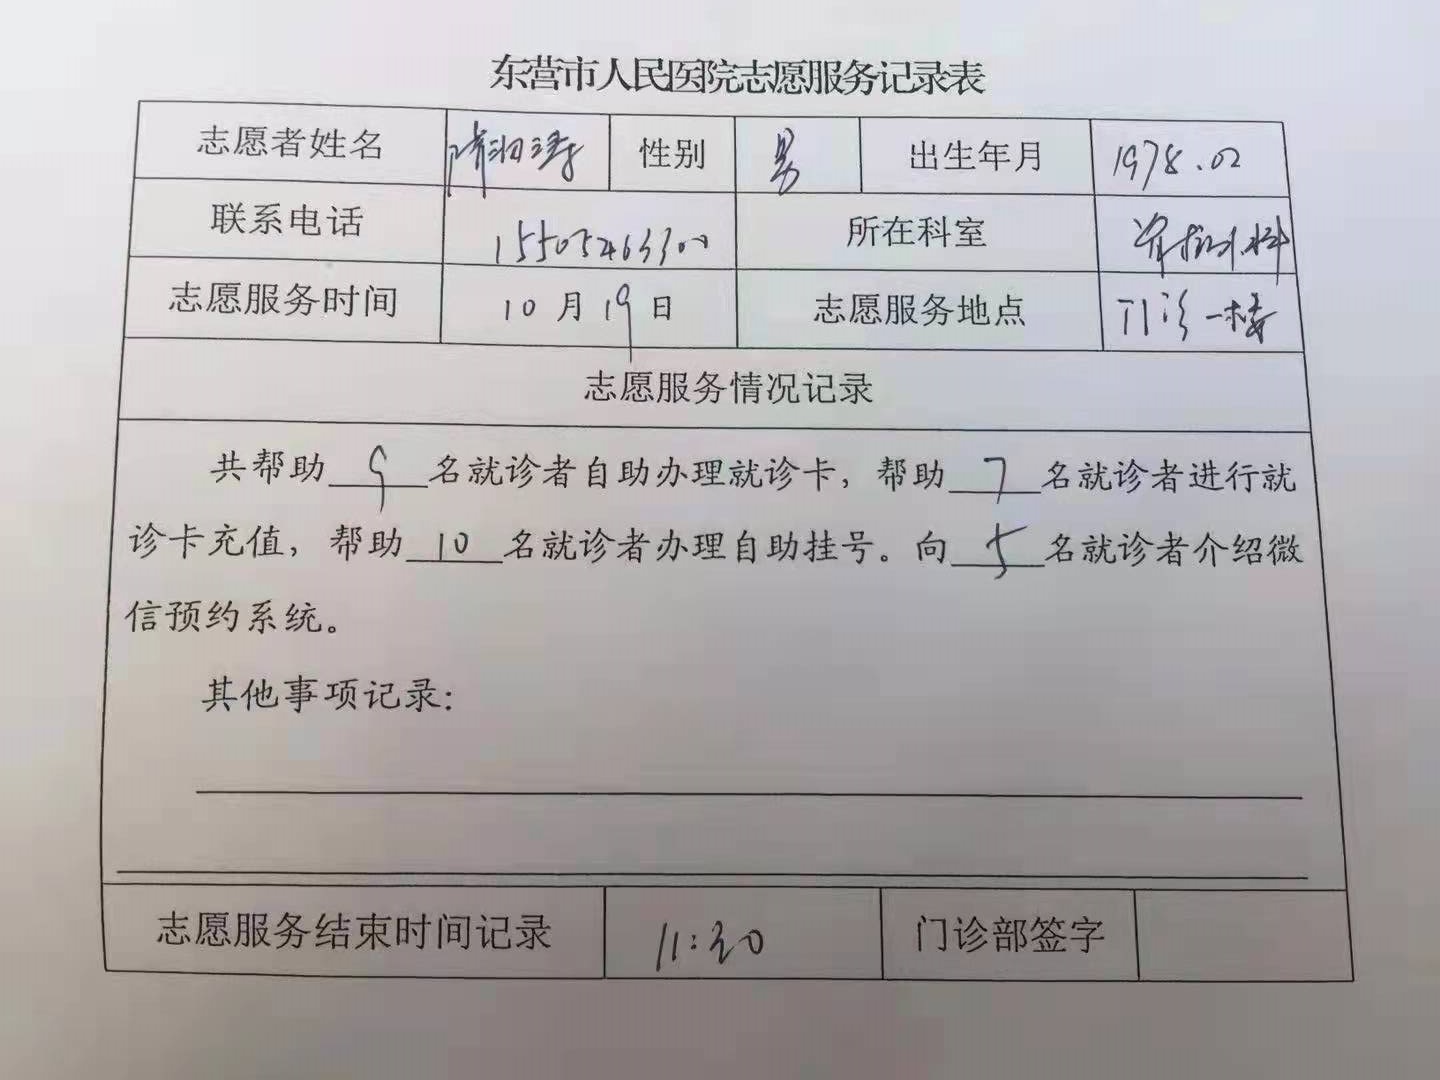 东营市人民医院志愿服务记录表
志愿者姓名 性别 男 出生年月 1978.02
联系电话 15505463300 所在科室 科
志愿服务时间 10月19日 志愿服务地点 门诊一楼
志愿服务情况记录
共帮助 9 名就诊者自助办理就诊卡，帮助 7 名就诊者进行就
诊卡充值，帮助 10 名就诊者办理自助挂号。向 5 名就诊者介绍微
信预约系统。
其他事项记录：
志愿服务结束时间记录 11:30 门诊部签字